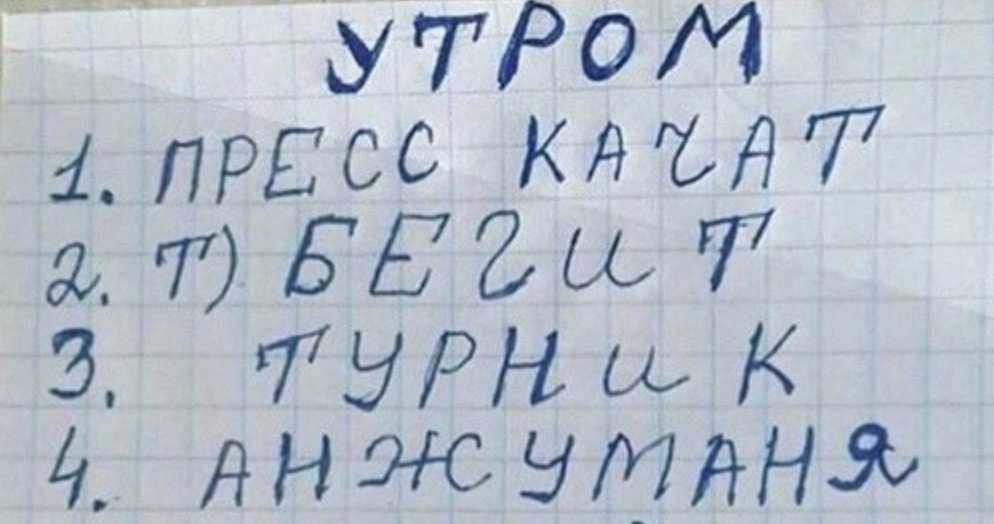 УТРОМ
1. ПРЕСС КАЧАТ
2. Т) БЕГИТ
3. ТУРНИК
4. АНЖУМАНЯ